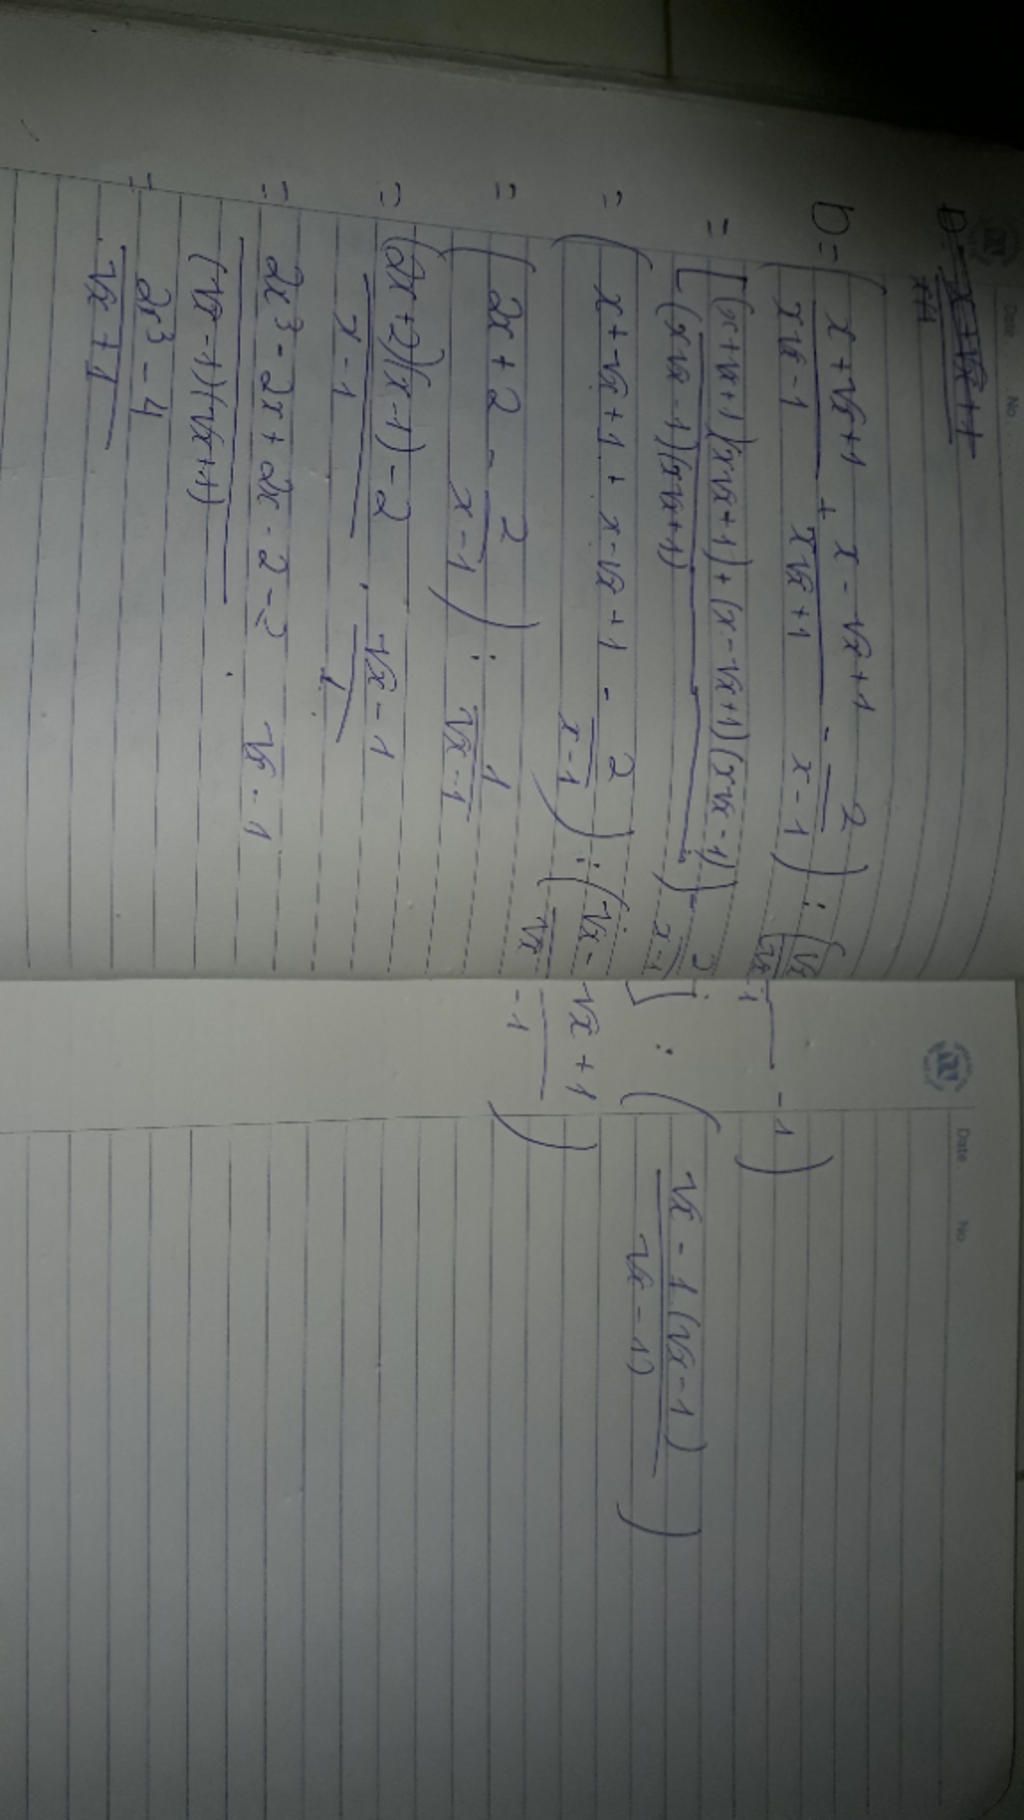 Date No
D = x+√x+1
x+1
D = ( x+√x+1 / x√x-1 + x-√x+1 / x√x+1 - 2 / x-1 ) : ( √x / √x-1 - 1 )
= [ (x+√x+1)(x√x+1)+(x-√x+1)(x√x-1) / (x√x-1)(x√x+1) - 2 / x-1 ] : ( √x - 1(√x-1) / √x-1 )
= ( x+√x+1 + x-√x+1 - 2 / x-1 ) : ( √x - √x+1 / √x-1 )
= ( 2x+2 - 2 / x-1 ) : 1 / √x-1
= (2x+2)(x-1)-2 / x-1 . √x-1 / 1
= 2x³-2x+2x-2-2 / (√x-1)(√x+1) . √x-1
= 2x³-4 / √x+1
Date No